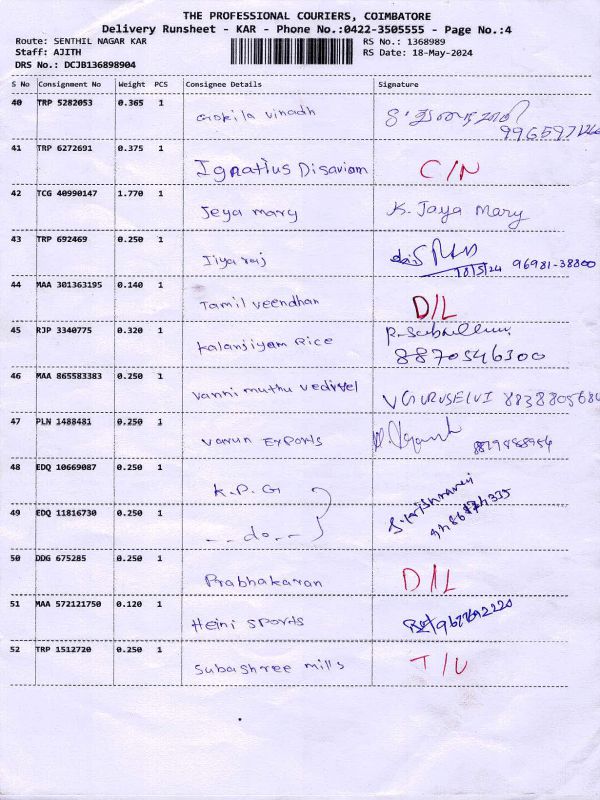 THE PROFESSIONAL COURIERS, COIMBATORE
Delivery Runsheet - KAR - Phone No.:0422-3505555 - Page No.:4
Route: SENTHIL NAGAR KAR RS No.: 1368989
Staff: AJITH RS Date: 18-May-2024
DRS No.: DCJB136898904
S No Consignment No Weight PCS Consignee Details Signature
40 TRP 5282053 0.365 1 Gokila Vinadh
41 TRP 6272691 0.375 1 Ignatius Disaviam C/N
42 TCG 40990147 1.770 1 Jeya mary K. Jaya Mary
43 TRP 692469 0.250 1 Jiya raj 18/5/24 96981-38800
44 MAA 301363195 0.140 1 Tamil veendhan D/L
45 RJP 3340775 0.320 1 Kalanjiyam Rice
8870546300
46 MAA 865583383 0.250 1 Vanni muthu vedivel V GURUSELVI
47 PLN 1488481 0.250 1 Varun Exports
48 EDQ 10669087 0.250 1 K.P.G
49 EDQ 11816730 0.250 1 --do.--
50 DDG 675285 0.250 1 Prabhakaran D/L
51 MAA 572121750 0.120 1 Heini sports
52 TRP 1512720 0.250 1 Subashree mills T/U